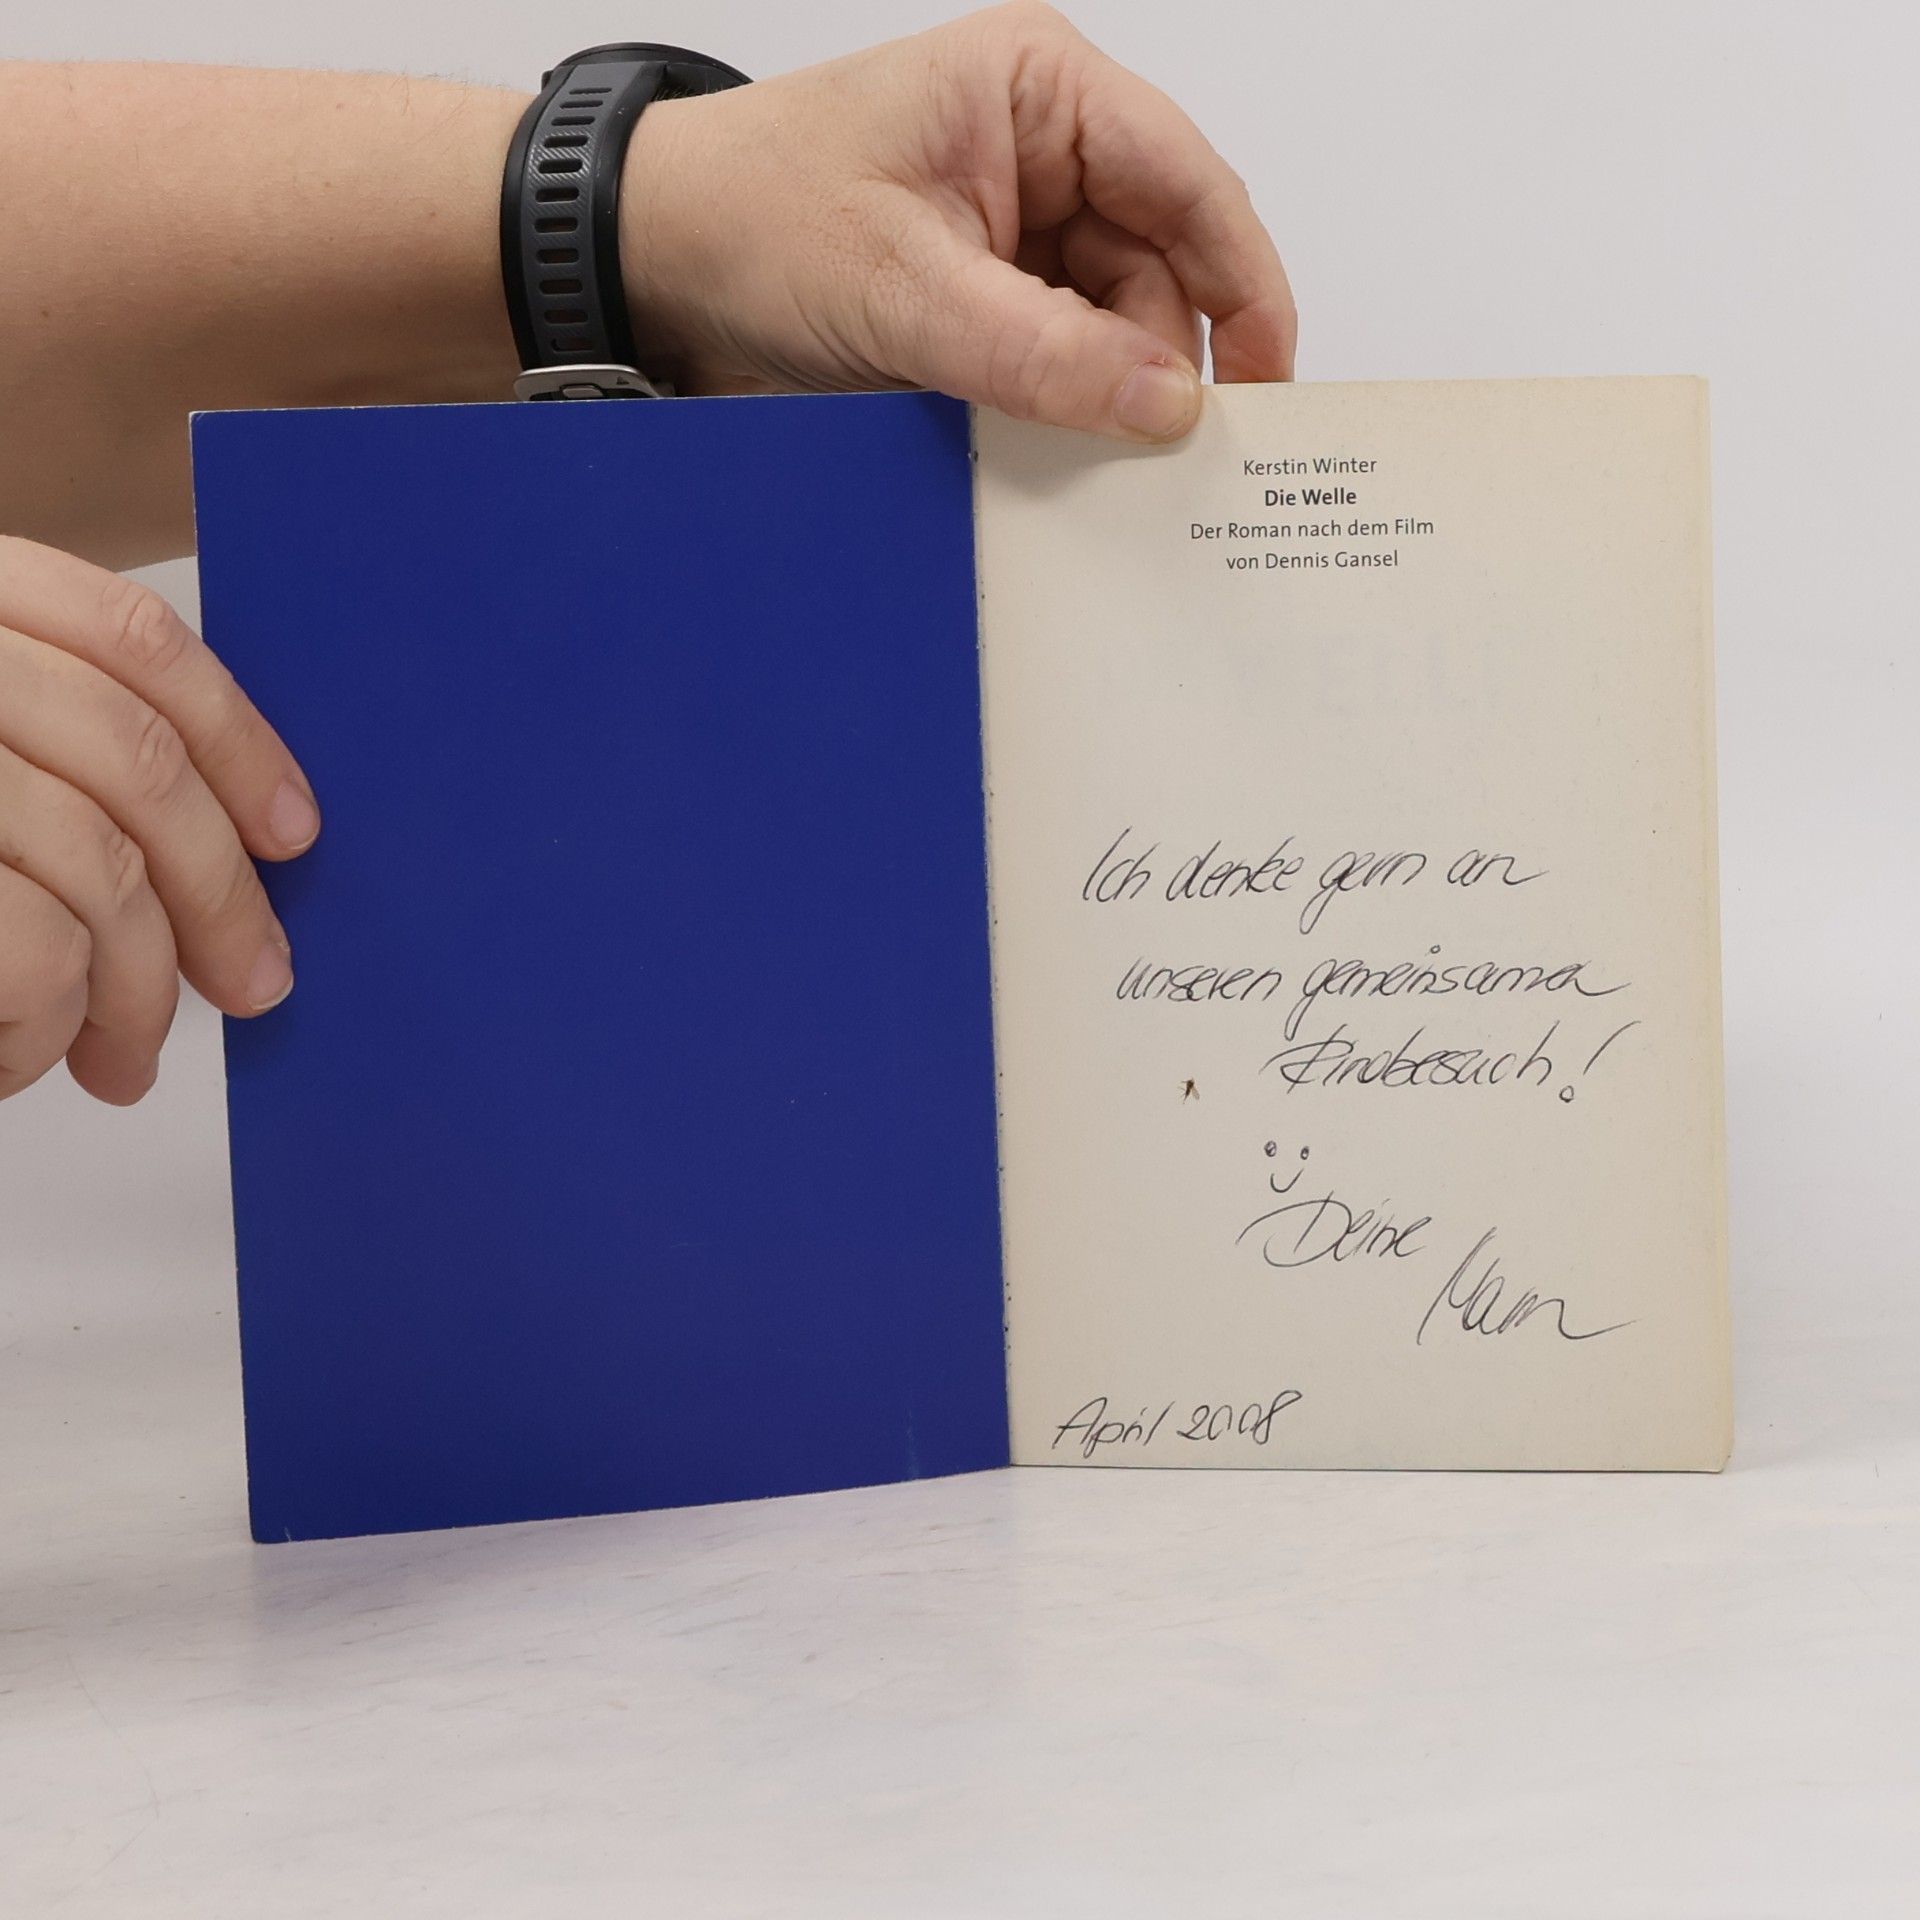 Kerstin Winter
Die Welle
Der Roman nach dem Film
von Dennis Gansel
Ich denke gern an
unseren gemeinsamen
Kinobesuch!
Deine
Mam
April 2008